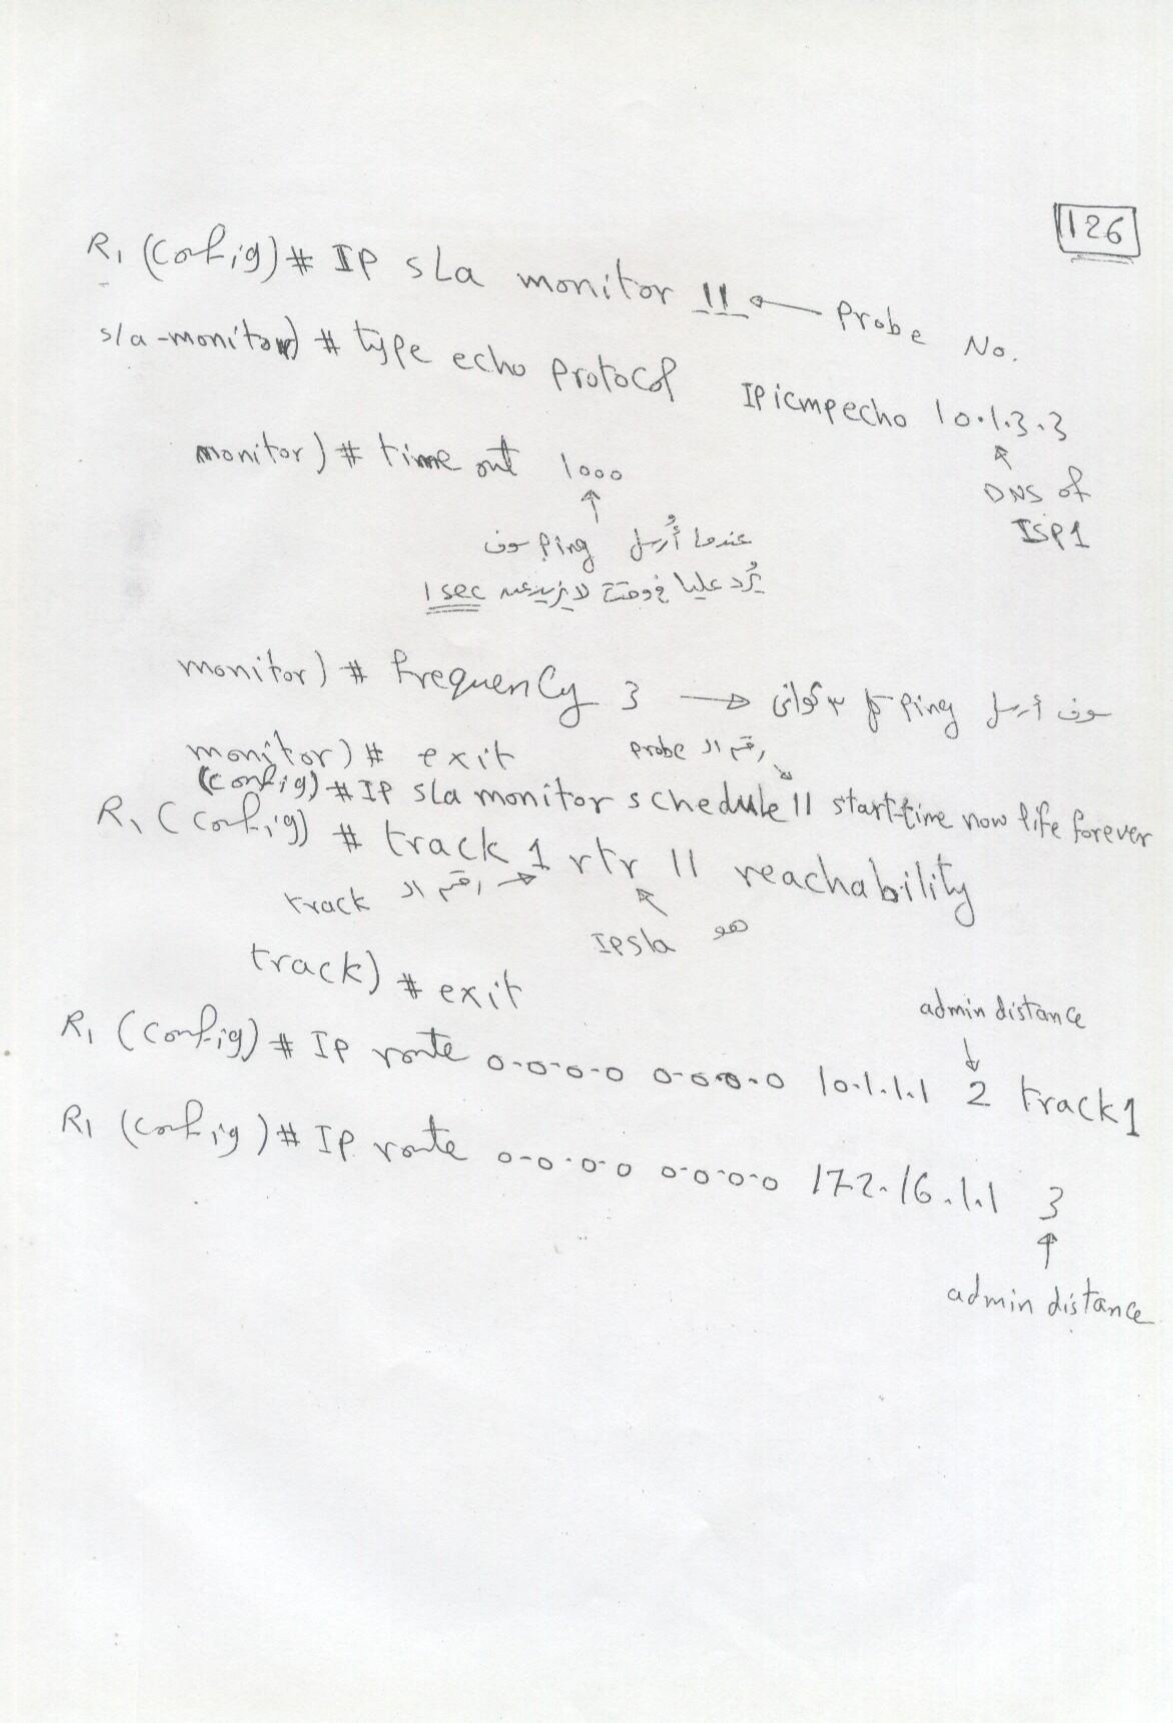 126
R1 (Config)# IP sLa monitor 11 ← Probe No.
s/a-monitor) # type echo Protocol IPicmpecho 10.1.3.3
DNS of
ISP1
monitor) # time out 1000
عندما أُرسل ping سوف
يُرد عليا في وقت لا يزيد عن 1 sec
monitor) # frequency 3 → سوف أرسل ping كل ٣ ثوانى
monitor) # exit
رقم الـ probe
(config) # IP sla monitor schedule 11 start-time now life forever
R1 (Config) # track 1 rtr 11 reachability
رقم الـ track →
هو IPsla
track) # exit
admin distance
R1 (Config) # IP route 0.0.0.0 0.0.0.0 10.1.1.1 2 track1
R1 (Config) # IP route 0.0.0.0 0.0.0.0 172.16.1.1 3
admin distance